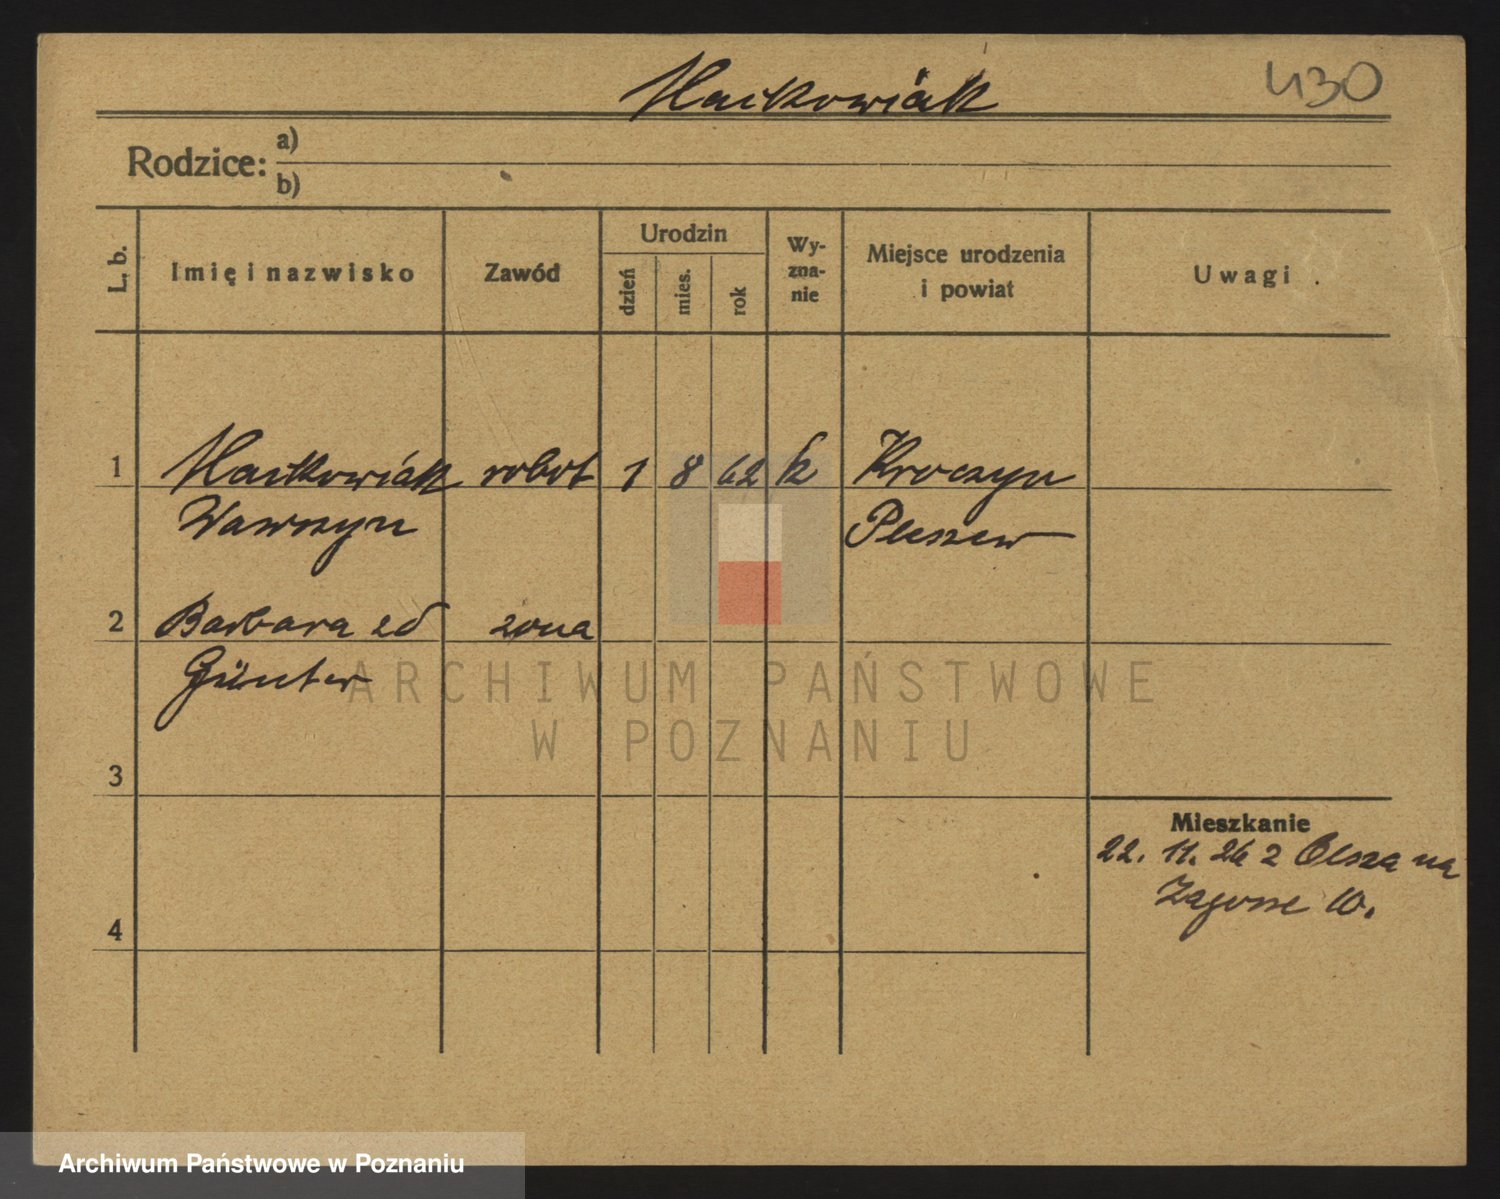 Maćkowiak
430
Rodzice: a)
b)
L. b.
Imię i nazwisko
Zawód
Urodzin
dzień
mies.
rok
Wy-
zna-
nie
Miejsce urodzenia
i powiat
Uwagi
1 Maćkowiak robot 1 8 62 k
Wawrzyn
Pleszew
2 Barbara zd żona
Günter
3
Mieszkanie
22. 11. 26 z Olsza na
Zagorze 10.
4
ARCHIWUM PAŃSTWOWE
W POZNANIU
Archiwum Państwowe w Poznaniu